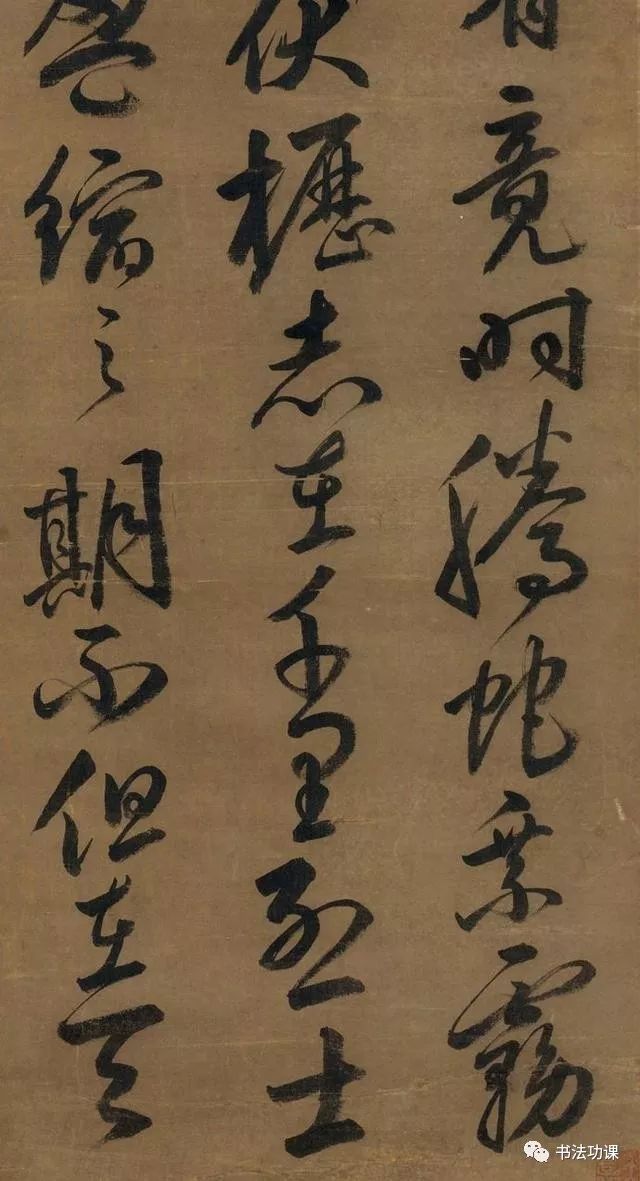 有竟时腾蛇乗霧
伏櫪志在千里烈士
盈缩之期不但在天
书法功课